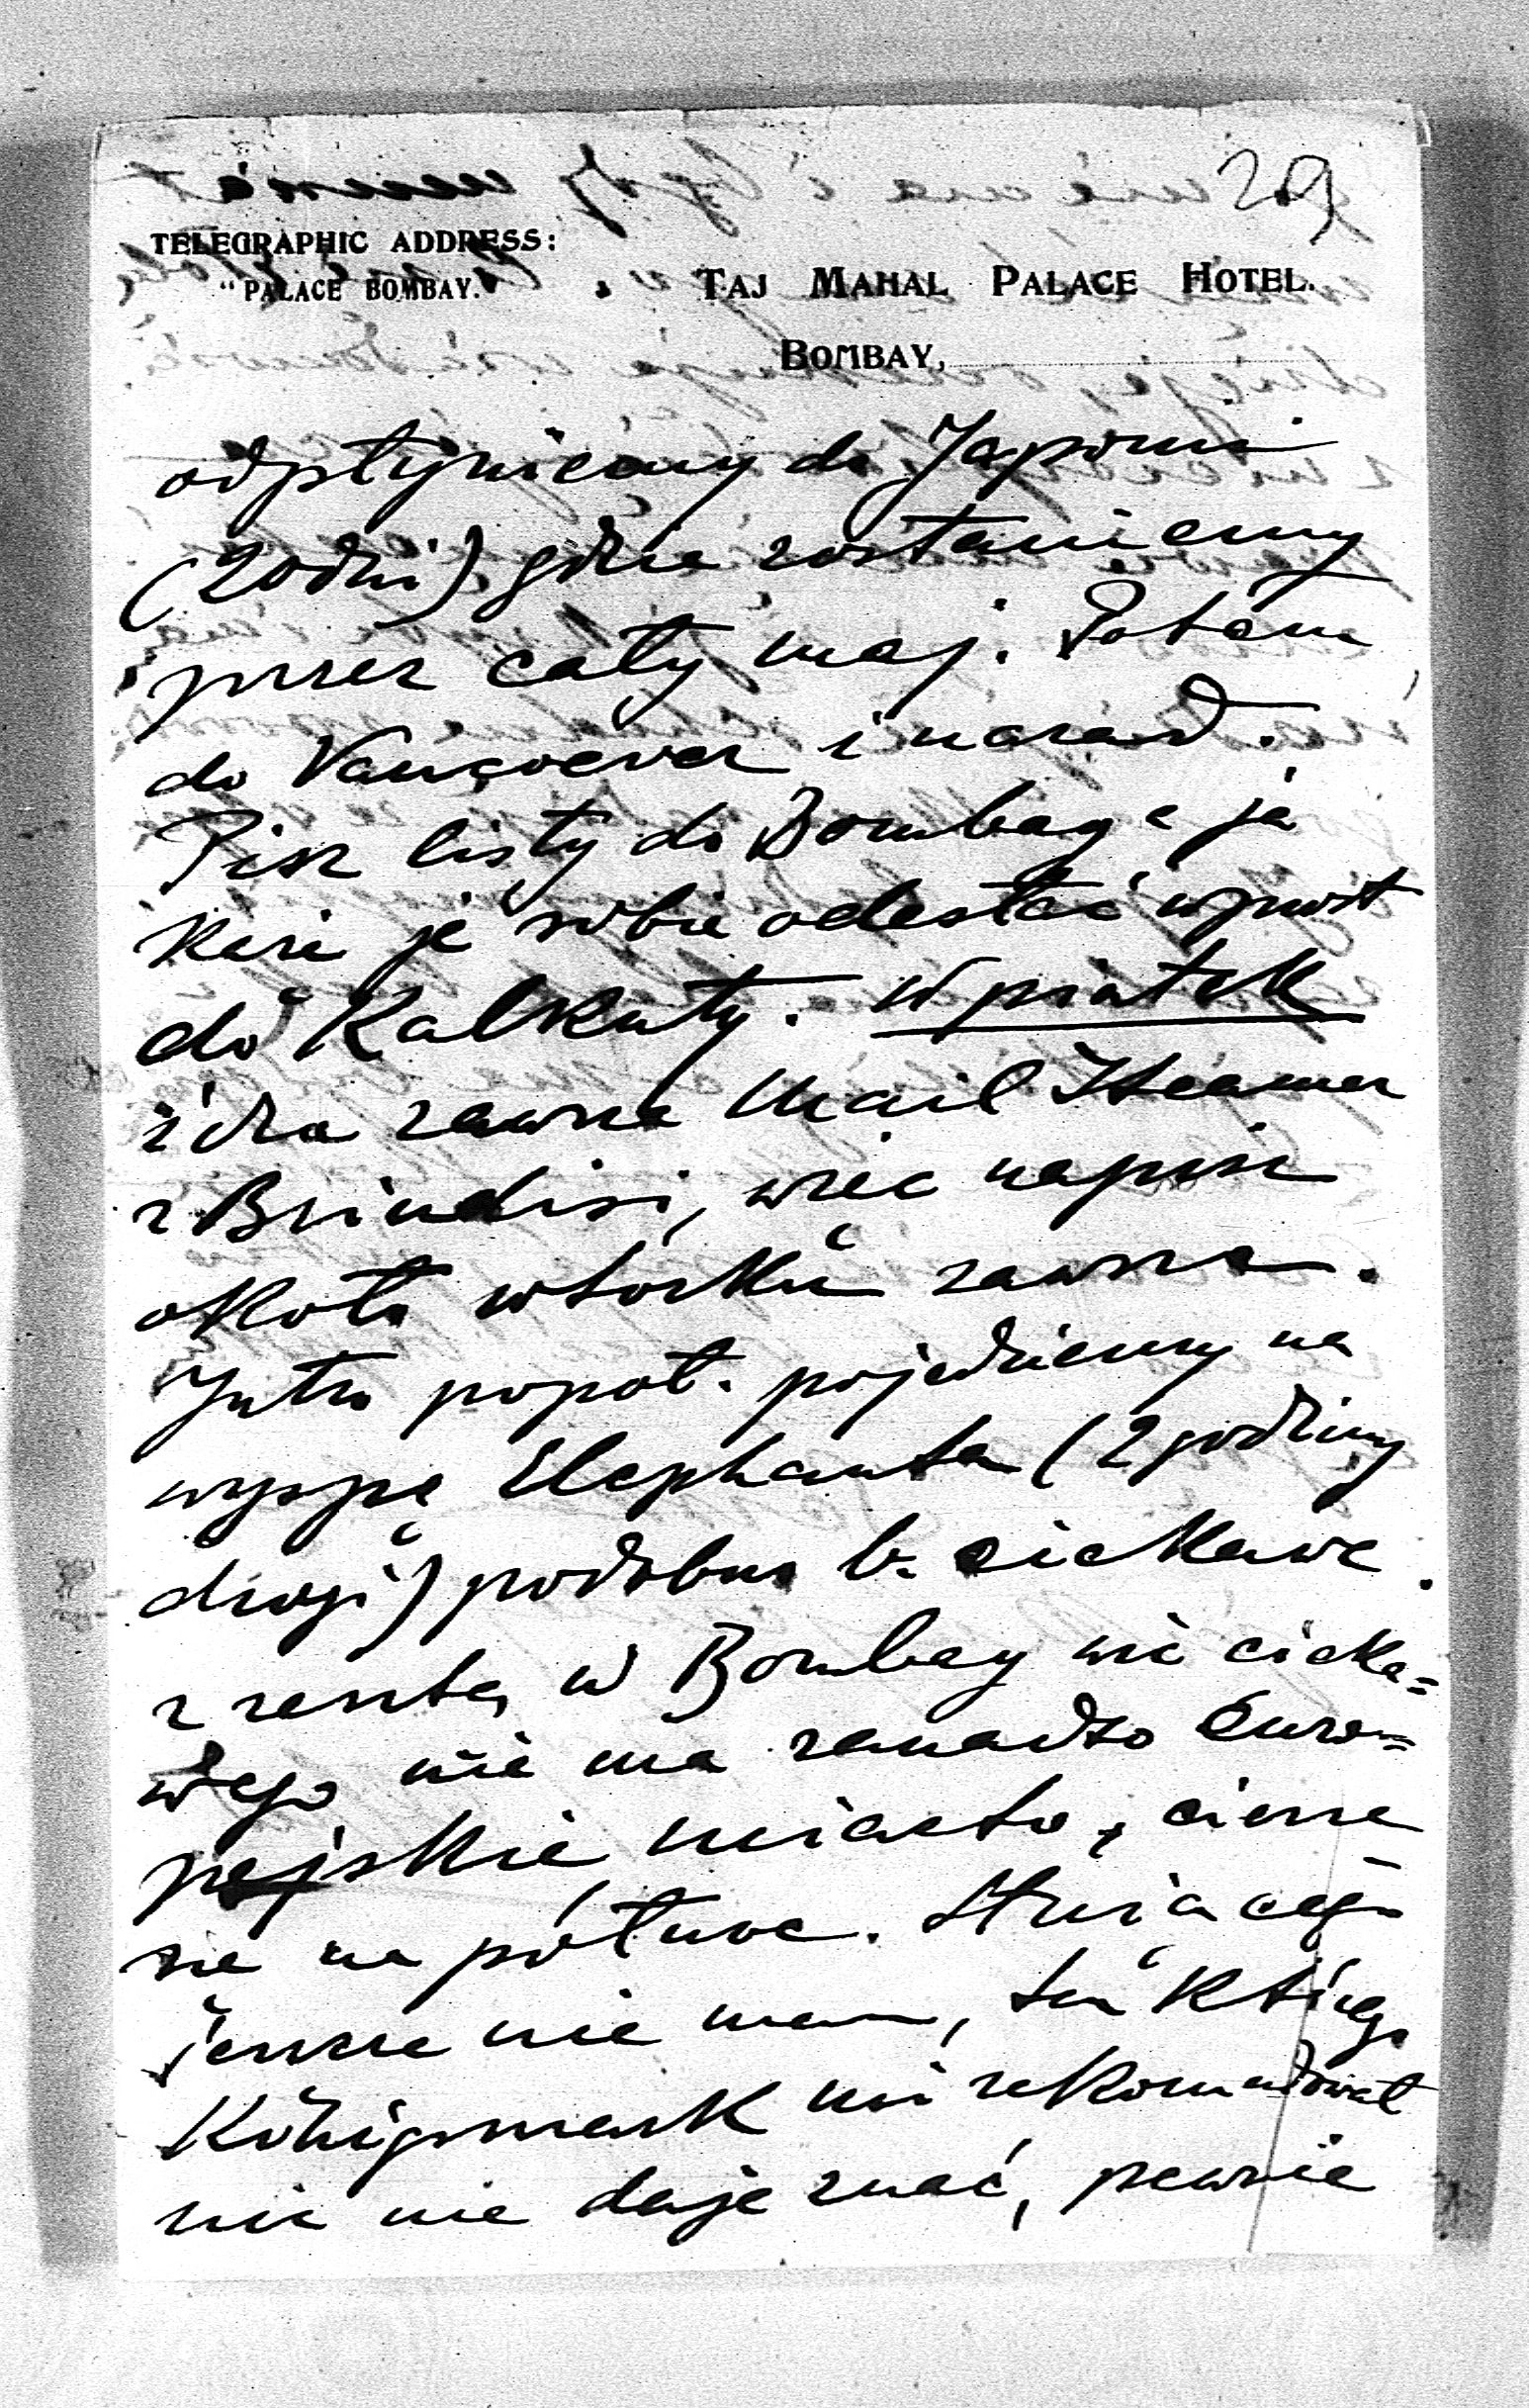 209
TELEGRAPHIC ADDRESS:
"PALACE BOMBAY."
TAJ MAHAL PALACE HOTEL.
BOMBAY,
odpłyniemy do Japonii
(20 dni) gdzie zostaniemy
przez cały maj. Potem
do Vancoever i nazad.
Pisz listy do Bombay a ja
każę je sobie odesłać wprost
do Kalkuty. W piątek
idzie zawsze Mail Steamer
z Brindisi, więc napisz
około wtorku zawsze.
Jutro popoł. pojedziemy na
wyspę Elephanta (2 godziny
drogi) podobno b. ciekawe.
z resztą w Bombay nic cieka=
wego nie ma zanadto Euro=
pejskie miasto, cieszę
się na północ. Służącego
jeszcze nie mam, ten którego
Königsmark mi rekomendował
nic nie daje znać, pewnie